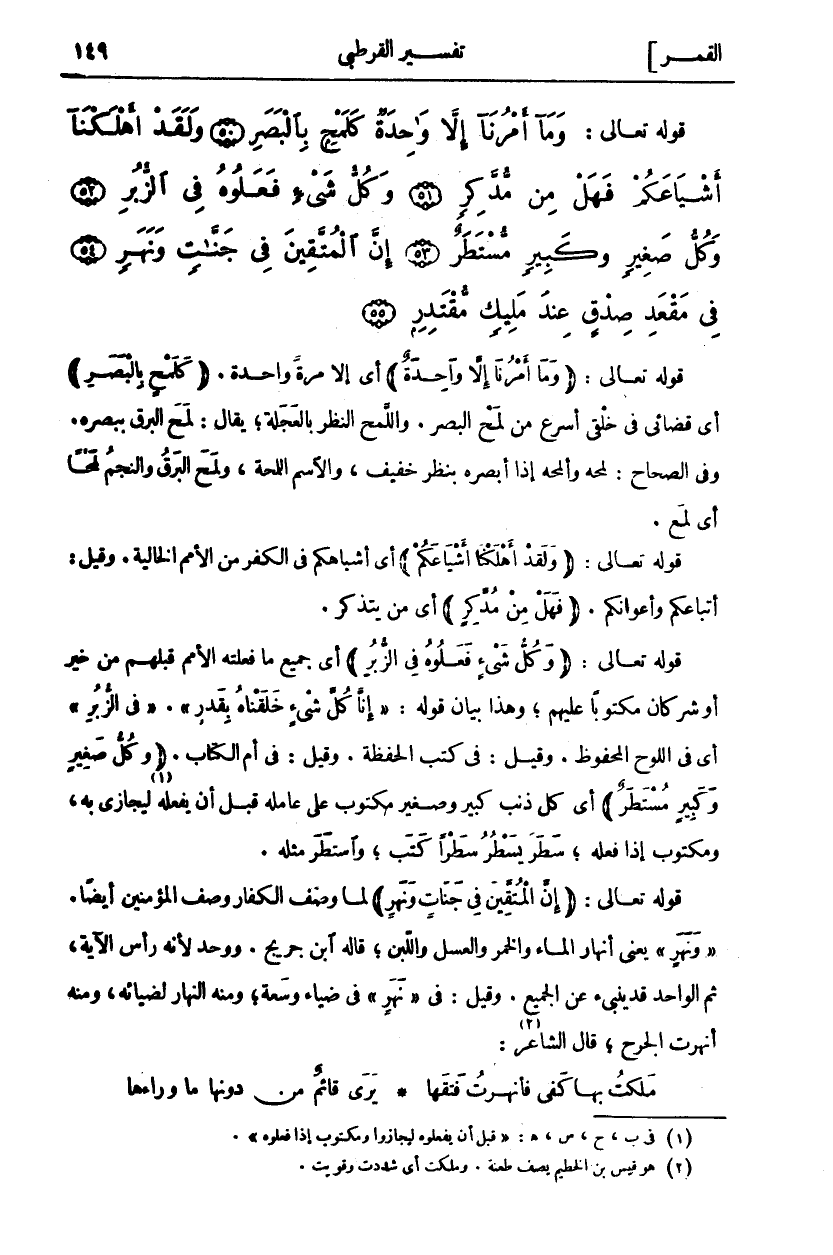 القمر] تفسير القرطبي ١٤٩
قوله تعالى : وَمَآ أَمْرُنَآ إِلَّا وَٰحِدَةٌ كَلَمْحٍ بِٱلْبَصَرِ ٥٠ وَلَقَدْ أَهْلَكْنَآ
أَشْيَاعَكُمْ فَهَلْ مِن مُّدَّكِرٍ ٥١ وَكُلُّ شَىْءٍ فَعَلُوهُ فِى ٱلزُّبُرِ ٥٢
وَكُلُّ صَغِيرٍ وَكَبِيرٍ مُّسْتَطَرٌ ٥٣ إِنَّ ٱلْمُتَّقِينَ فِى جَنَّٰتٍ وَنَهَرٍ ٥٤
فِى مَقْعَدِ صِدْقٍ عِندَ مَلِيكٍ مُّقْتَدِرٍ ٥٥
قوله تعالى : ﴿ وَمَا أَمْرُنَا إِلَّا وَاحِدَةٌ ﴾ أى إلا مرةً واحدة . ﴿ كَلَمْحٍ بِالْبَصَرِ ﴾
أى قضائى فى خلْقى أسرع من لَمْح البصر . واللَّمح النظر بالعَجَلة؛ يقال : لَمَح البرق ببصره.
وفى الصحاح : لمحه وألمحه إذا أبصره بنظر خفيف ، والآسم اللمحة ، ولَمَح البَرْقُ والنجمُ لَمْحًا
أى لَمَع .
قوله تعالى : ﴿ وَلَقَدْ أَهْلَكْنَا أَشْيَاعَكُمْ ﴾ أى أشباهكم فى الكفر من الأمم الخالية . وقيل :
أتباعكم وأعوانكم . ﴿ فَهَلْ مِنْ مُدَّكِرٍ ﴾ أى من يتذكر .
قوله تعالى : ﴿ وَكُلُّ شَىْءٍ فَعَلُوهُ فِى الزُّبُرِ ﴾ أى جميع ما فعلته الأمم قبلهم من خير
أو شر كان مكتوبًا عليهم ؛ وهذا بيان قوله : « إِنَّا كُلَّ شَىْءٍ خَلَقْنَاهُ بِقَدَرٍ » . « فى الزُّبُرِ »
أى فى اللوح المحفوظ . وقيل : فى كتب الحفظة . وقيل : فى أم الكتاب . ﴿ وكُلُّ صَغِيرٍ
وَكَبِيرٍ مُسْتَطَرٌ ﴾ أى كل ذنب كبير وصغير مكتوب على عامله قبل أن يفعله (١) ليجازى به ،
ومكتوب إذا فعله ؛ سَطَرَ يَسْطُرُ سَطْرًا كَتَب ؛ وآستَطَرَ مثله .
قوله تعالى : ﴿ إِنَّ الْمُتَّقِينَ فِى جَنَّاتٍ وَنَهَرٍ ﴾ لما وصف الكفار وصف المؤمنين أيضًا.
« وَنَهَرٍ » يعنى أنهار الماء والخمر والعسل واللَّبن ؛ قاله آبن جريج . ووحد لأنه رأس الآية ،
ثم الواحد قد ينبىء عن الجميع . وقيل : فى « نَهَرٍ » فى ضياء وسَعة؛ ومنه النهار لضيائه ، ومنه
أنهرت الجرح ؛ قال الشاعر (٢) :
مَلكتُ بها كَفى فأنهرتُ فَتقَها * يَرَى قائمٌ من دونها ما وراءها
(١) فى ب ، ح ، س ، ه : « قبل أن يفعلوه ليجازوا ومكتوب إذا فعلوه » .
(٢) هو قيس بن الخطيم يصف طعنة . وملكت أى شددت وقويت .